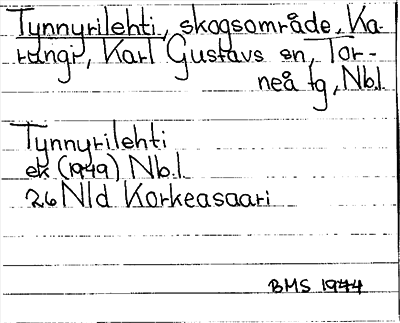 Tynnyrilehti, skogsområde, Ka-
rungi, Karl Gustavs sn, Tor-
neå tg, Nb.l.
Tynnyrilehti
ek (1949) Nb.l.
26 Nld Korkeasaari
BMS 1944